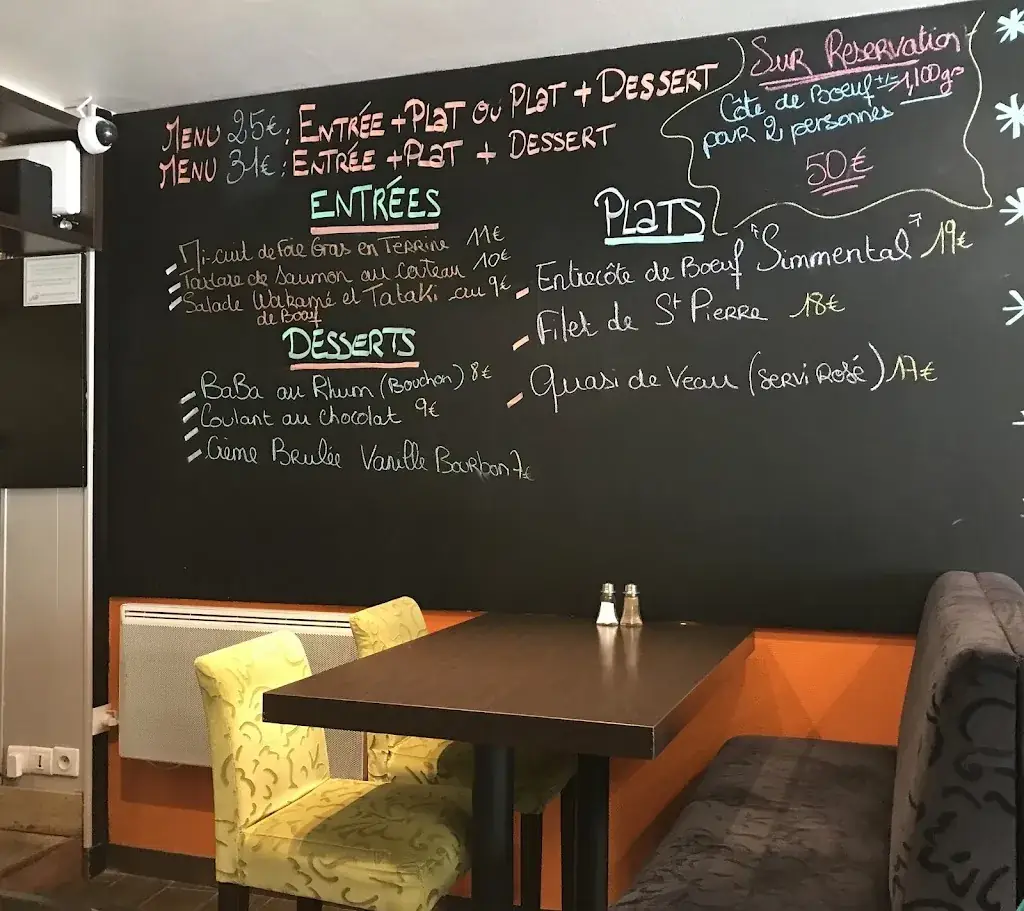 MENU 25€ : ENTRÉE + PLAT OU PLAT + DESSERT
MENU 31€ : ENTRÉE + PLAT + DESSERT
SUR RESERVATION
Côte de Boeuf +/- 1,100grs
pour 2 personnes
50€
ENTRÉES
Mi-cuit de Foie Gras en Terrine 11€
Tartare de Saumon au Couteau 10€
Salade Wakamé et Tataki 9€
de Boeuf
DESSERTS
BaBa au Rhum (Bouchon) 8€
Coulant au chocolat 9€
Crème Brulée Vanille Bourbon 7€
PLATS
Entrecôte de Boeuf "Simmental" 19€
Filet de St PIERRE 18€
Quasi de Veau (Servi Rosé) 17€